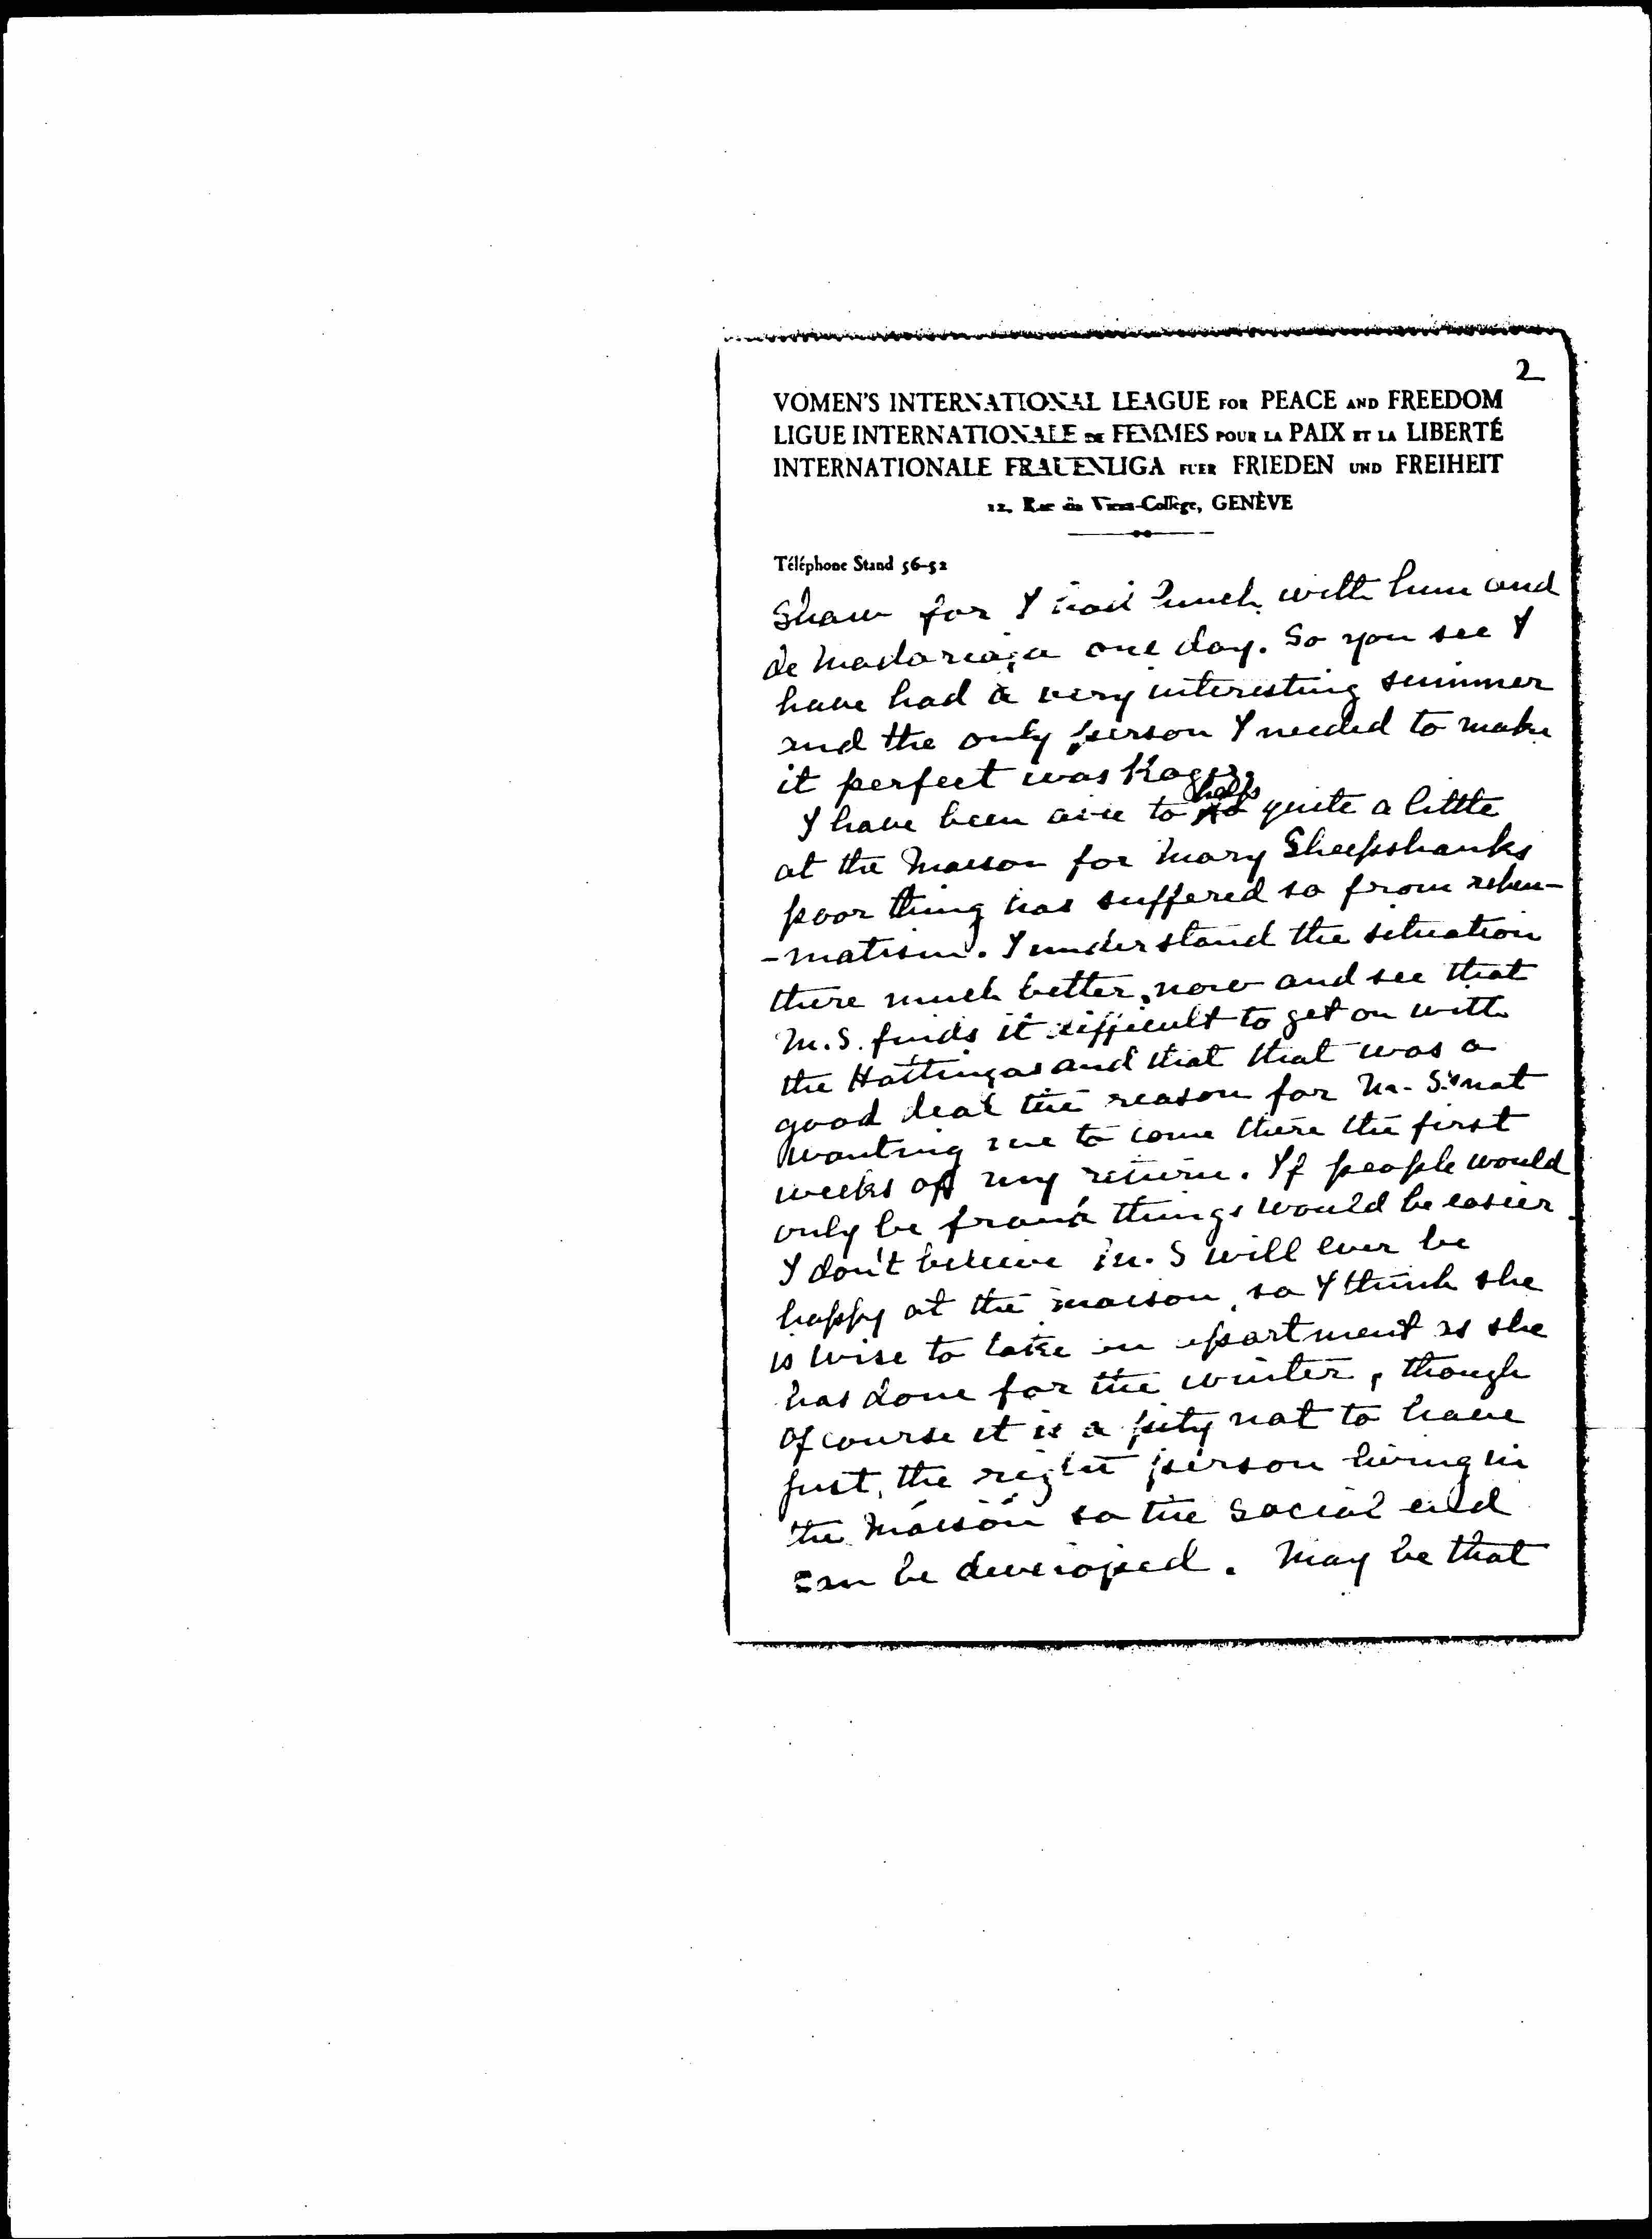 2
VOMEN'S INTERNATIONAL LEAGUE FOR PEACE AND FREEDOM
LIGUE INTERNATIONALE DE FEMMES POUR LA PAIX ET LA LIBERTÉ
INTERNATIONALE FRAUENLIGA FUER FRIEDEN UND FREIHEIT
12, Rue du Vieux-Collège, GENÈVE
Téléphone Stand 56-52
Shaw for I had lunch with him and
de Madariaga one day. So you see I
have had a very interesting summer
and the only person I needed to make
it perfect was
I have been able to help quite a little
at the Maison for Mary Sheepshanks
poor thing has suffered so from rheu-
-matism. I understand the situation
there much better, now and see that
M.S. finds it difficult to get on with
the and that that was a
good deal the reason for M.S's not
wanting me to come there the first
weeks of my return. If people would
only be frank things would be easier.
I don't believe M.S will ever be
happy at the maison, so I think she
is wise to take an apartment as she
has done for the winter, though
of course it is a pity not to have
just, the right person living in
the Maison so the social end
can be developed. May be that